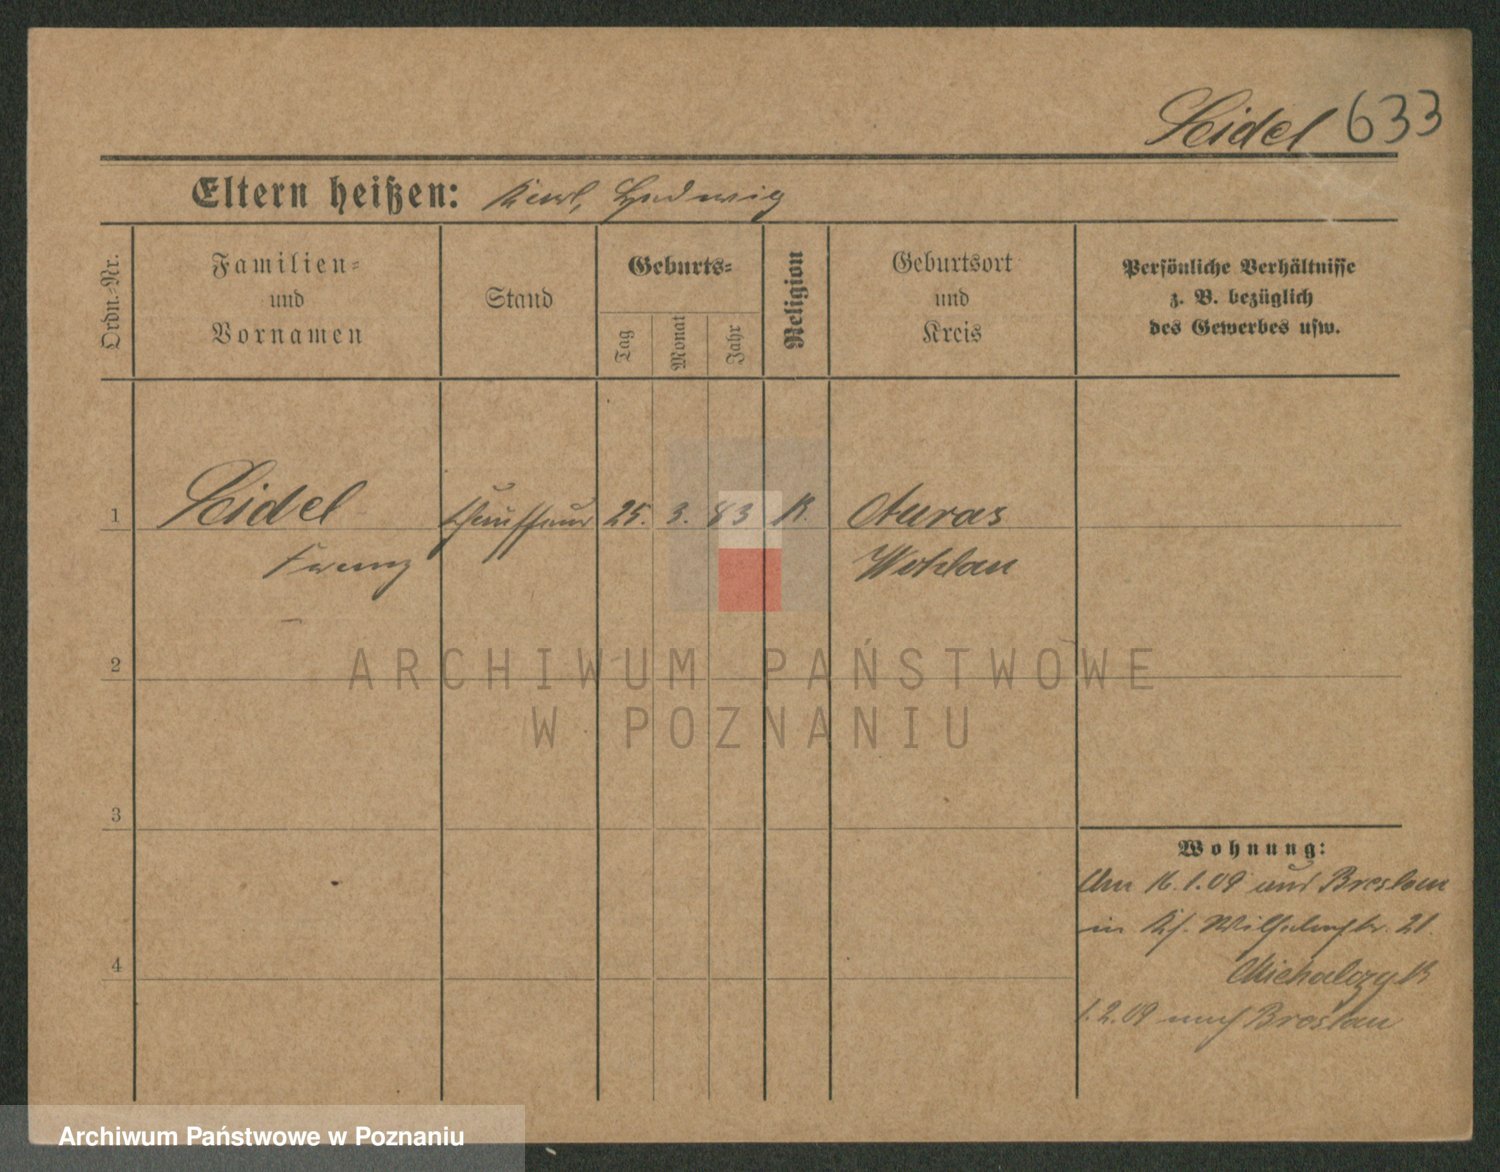 Seidel 633
Eltern heißen: Karl, Hedwig
Ordn.-Nr.
Familien-
und
Vornamen
Stand
Geburts-
Tag
Monat
Jahr
Religion
Geburtsort
und
Kreis
Persönliche Verhältnisse
z. B. bezüglich
des Gewerbes usw.
1 Seidel Chauffeur 25. 3. 83 K. Auras
Franz Wohlau
2
3
4
Wohnung:
Am 16.1.09 aus Breslau
in Wilhelmstr. 21.
Michalczyk
1.2.09 nach Breslau
ARCHIWUM PAŃSTWOWE
W POZNANIU
Archiwum Państwowe w Poznaniu